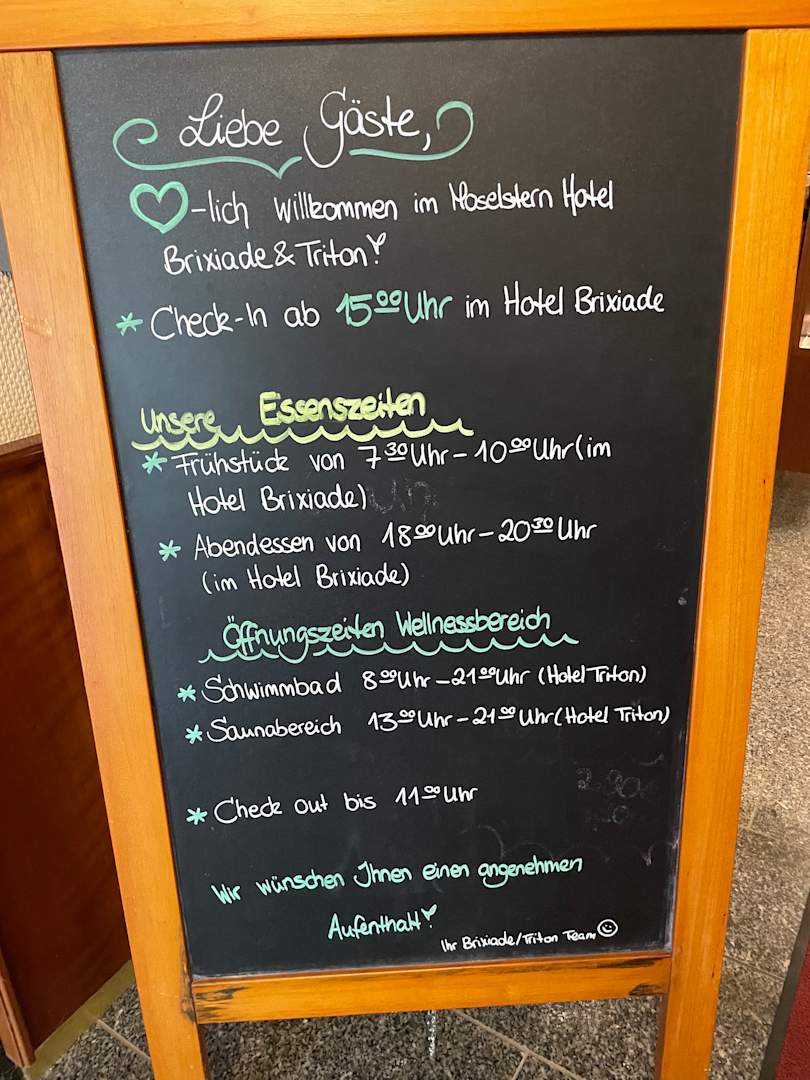 Liebe Gäste,
♡-lich Willkommen im Moselstern Hotel
Brixiade & Triton!
* Check-In ab 15⁰⁰ Uhr im Hotel Brixiade
Unsere Essenszeiten
* Frühstück von 7³⁰ Uhr – 10⁰⁰ Uhr (im
Hotel Brixiade)
* Abendessen von 18⁰⁰ Uhr – 20³⁰ Uhr
(im Hotel Brixiade)
Öffnungszeiten Wellnessbereich
* Schwimmbad 8⁰⁰ Uhr – 21⁰⁰ Uhr (Hotel Triton)
* Saunabereich 13⁰⁰ Uhr – 21⁰⁰ Uhr (Hotel Triton)
* Check out bis 11⁰⁰ Uhr
Wir wünschen Ihnen einen angenehmen
Aufenthalt!
Ihr Brixiade/Triton Team ☺